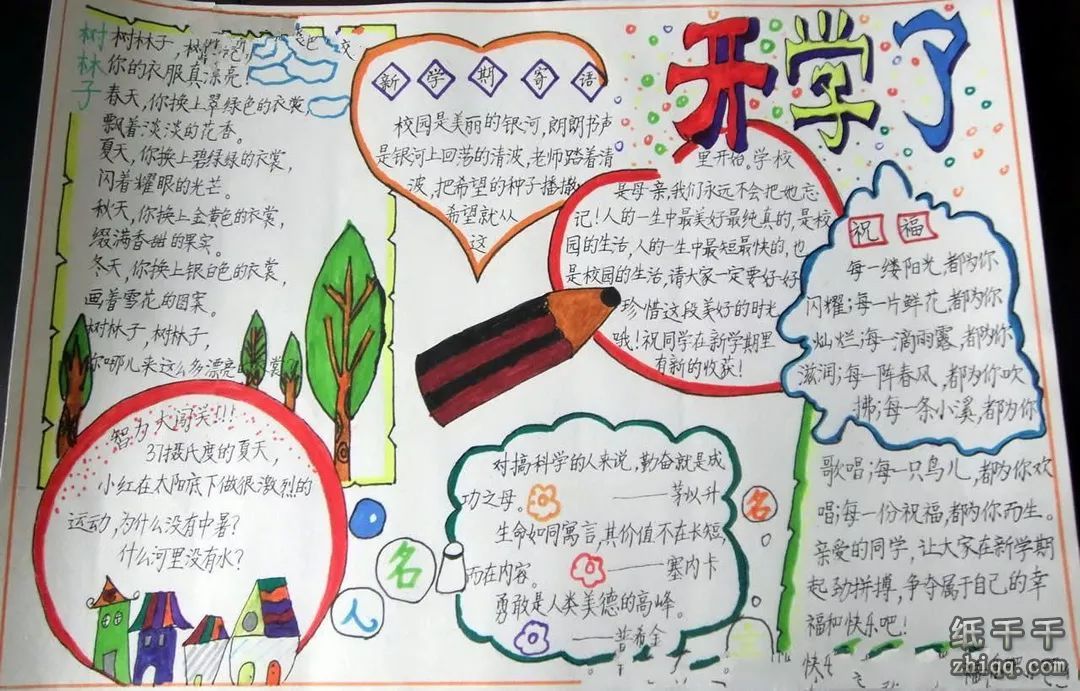 开学了
树林子
树林子,树林子,
你的衣服真漂亮!
春天,你换上翠绿色的衣裳,
飘着淡淡的花香。
夏天,你换上碧绿绿的衣裳,
闪着耀眼的光芒。
秋天,你换上金黄色的衣裳,
缀满香甜的果实。
冬天,你换上银白色的衣裳,
画着雪花的图案。
树林子,树林子,
你哪儿来这么多漂亮的
新学期寄语
校园是美丽的银河,朗朗书声
是银河上回荡的清波,老师踏着清
波,把希望的种子播撒
希望就从
这
里开始。学校
是母亲,我们永远不会把她忘
记!人的一生中最美好最纯真的,是校
园的生活,人的一生中最短最快的,也
是校园的生活,请大家一定要好好
珍惜这段美好的时光
哦!祝同学在新学期里
有新的收获!
祝福
每一缕阳光,都为你
闪耀;每一片鲜花,都为你
灿烂;每一滴雨露,都为你
滋润;每一阵春风,都为你吹
拂;每一条小溪,都为你
歌唱;每一只鸟儿,都为你欢
唱;每一份祝福,都为你而生。
亲爱的同学,让大家在新学期
起劲拼搏,争夺属于自己的幸
福和快乐吧!
快乐
智力大闯关!!!
37摄氏度的夏天,
小红在太阳底下做很激烈的
运动,为什么没有中暑?
什么河里没有水?
人名名言
对搞科学的人来说,勤奋就是成
功之母。
——茅以升
生命如同寓言,其价值不在长短,
而在内容。
——塞内卡
勇敢是人类美德的高峰。
——普希金
纸千千
zhiqq.com